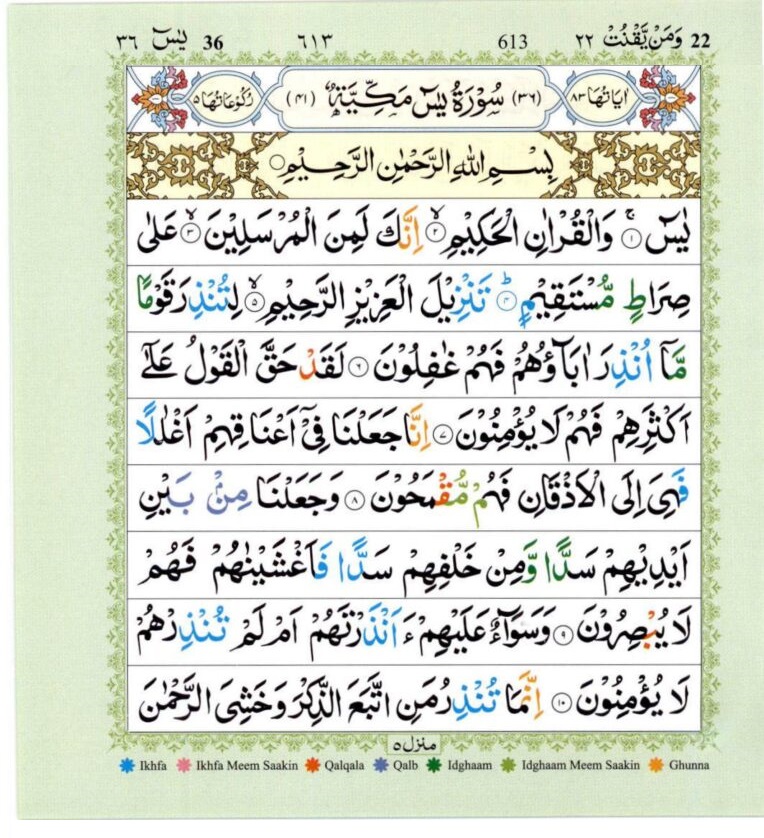 22 وَمَنۡ يَّقۡنُتۡ ٢٢ 613 ٦١٣ 36 يٰسٓ ٣٦
اٰيَاتُهَا ٨٣ (٣٦) سُوۡرَةُ يٰسٓ مَكِّيَّةٌ (٤١) رُكُوۡعَاتُهَا ٥
بِسۡمِ اللّٰهِ الرَّحۡمٰنِ الرَّحِيۡمِ
يٰسٓ ۚ‏ ١ وَالۡقُرۡاٰنِ الۡحَكِيۡمِ ۙ‏ ٢ اِنَّكَ لَمِنَ الۡمُرۡسَلِيۡنَ ۙ‏ ٣ عَلٰى
صِرَاطٍ مُّسۡتَقِيۡمٍ ؕ‏ ٤ تَنۡزِيۡلَ الۡعَزِيۡزِ الرَّحِيۡمِ ۙ‏ ٥ لِتُنۡذِرَ قَوۡمًا
مَّاۤ اُنۡذِرَ اٰبَآؤُهُمۡ فَهُمۡ غٰفِلُوۡنَ‏ ٦ لَقَدۡ حَقَّ الۡقَوۡلُ عَلٰٓى
اَكۡثَرِهِمۡ فَهُمۡ لَا يُؤۡمِنُوۡنَ‏ ٧ اِنَّا جَعَلۡنَا فِىۡۤ اَعۡنَاقِهِمۡ اَغۡلٰلًا
فَهِىَ اِلَى الۡاَذۡقَانِ فَهُمۡ مُّقۡمَحُوۡنَ‏ ٨ وَجَعَلۡنَا مِنۡۢ بَيۡنِ
اَيۡدِيۡهِمۡ سَدًّا وَّمِنۡ خَلۡفِهِمۡ سَدًّا فَاَغۡشَيۡنٰهُمۡ فَهُمۡ
لَا يُبۡصِرُوۡنَ‏ ٩ وَسَوَآءٌ عَلَيۡهِمۡ ءَاَنۡذَرۡتَهُمۡ اَمۡ لَمۡ تُنۡذِرۡهُمۡ
لَا يُؤۡمِنُوۡنَ‏ ١٠ اِنَّمَا تُنۡذِرُ مَنِ اتَّبَعَ الذِّكۡرَ وَخَشِىَ الرَّحۡمٰنَ
منزل ٥
Ikhfa Ikhfa Meem Saakin Qalqala Qalb Idghaam Idghaam Meem Saakin Ghunna